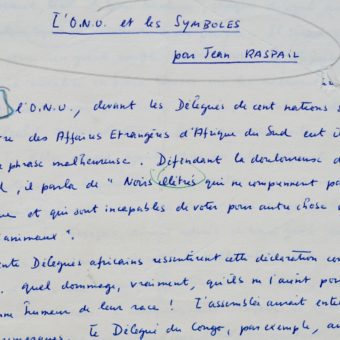 L'O.N.U. et les SYMBOLES
par Jean RASPAIL
l'O.N.U., devant les Délégués de cent nations s
re des Affaires Etrangères d'Afrique du Sud eut i
phrase malheureuse. Défendant la douloureuse d
d, il parla de "Noirs illétrés qui ne comprennent pa
ue et qui sont incapables de voter pour autre chose
animaux".
ente Délégués africains ressentirent cette déclaration co
quel dommage, vraiment, qu'ils ne l'aient pr
me humeur de leur race ! L'assemblée aurait ente
Le Délégué du Congo, par exemple, au